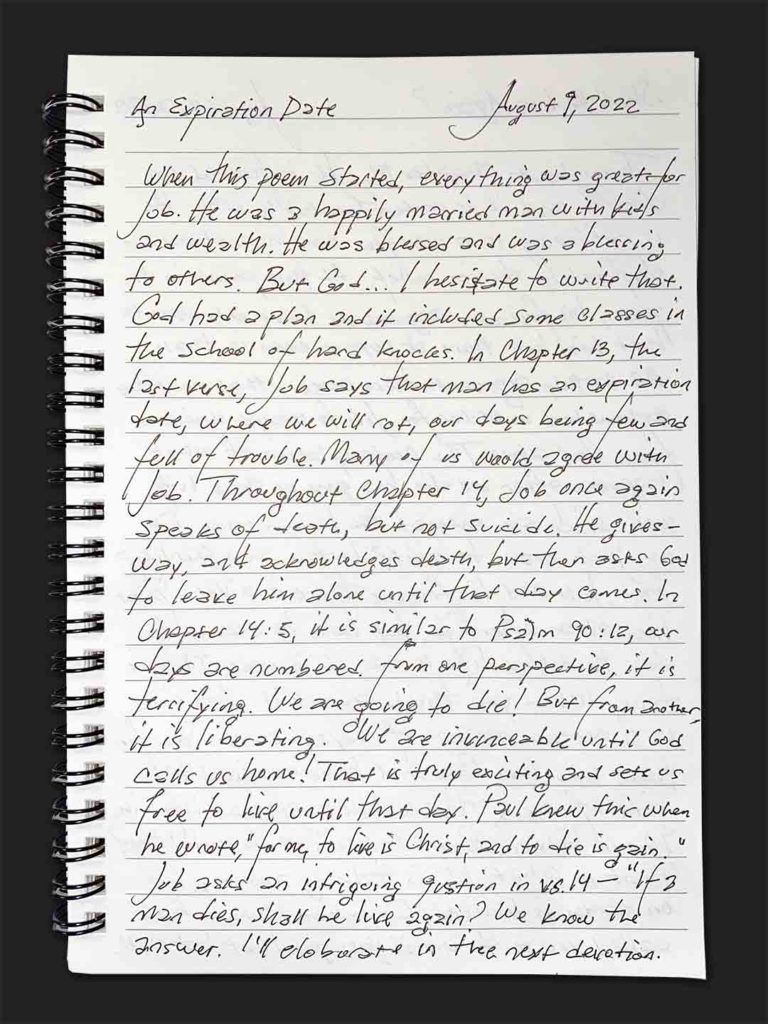 An Expiration Date August 9, 2022
When this poem started, everything was great for
Job. He was a happily married man with kids
and wealth. He was blessed and was a blessing
to others. But God... I hesitate to write that.
God had a plan and it included some classes in
the school of hard knocks. In Chapter 13, the
last verse, Job says that man has an expiration
date, where we will rot, our days being few and
full of trouble. Many of us would agree with
Job. Throughout Chapter 14, Job once again
speaks of death, but not suicide. He gives-
way, and acknowledges death, but then asks God
to leave him alone until that day comes. In
Chapter 14:5, it is similar to Psalm 90:12, our
days are numbered. From one perspective, it is
terrifying. We are going to die! But from another,
it is liberating. We are invinceable until God
calls us home! That is truly exciting and sets us
free to live until that day. Paul knew this when
he wrote, "for me, to live is Christ, and to die is gain."
Job asks an intriguing qustion in vs. 14 – "If a
man dies, shall he live again? We know the
answer. I'll eloborate in the next devotion.